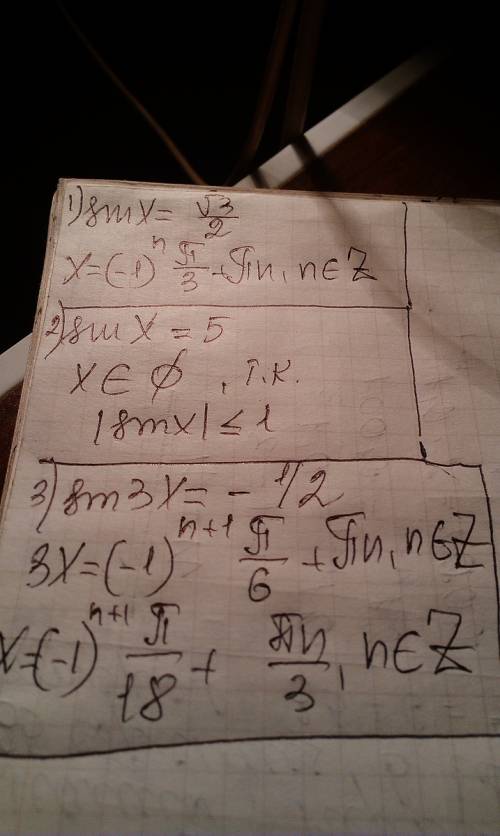 1) sin x = √3/2
x = (-1)^n π/3 + πn, n ∈ Z
2) sin x = 5
x ∈ ∅, т.к.
|sin x| ≤ 1
3) sin 3x = - 1/2
3x = (-1)^{n+1} π/6 + πn, n ∈ Z
x = (-1)^{n+1} π/18 + πn/3, n ∈ Z